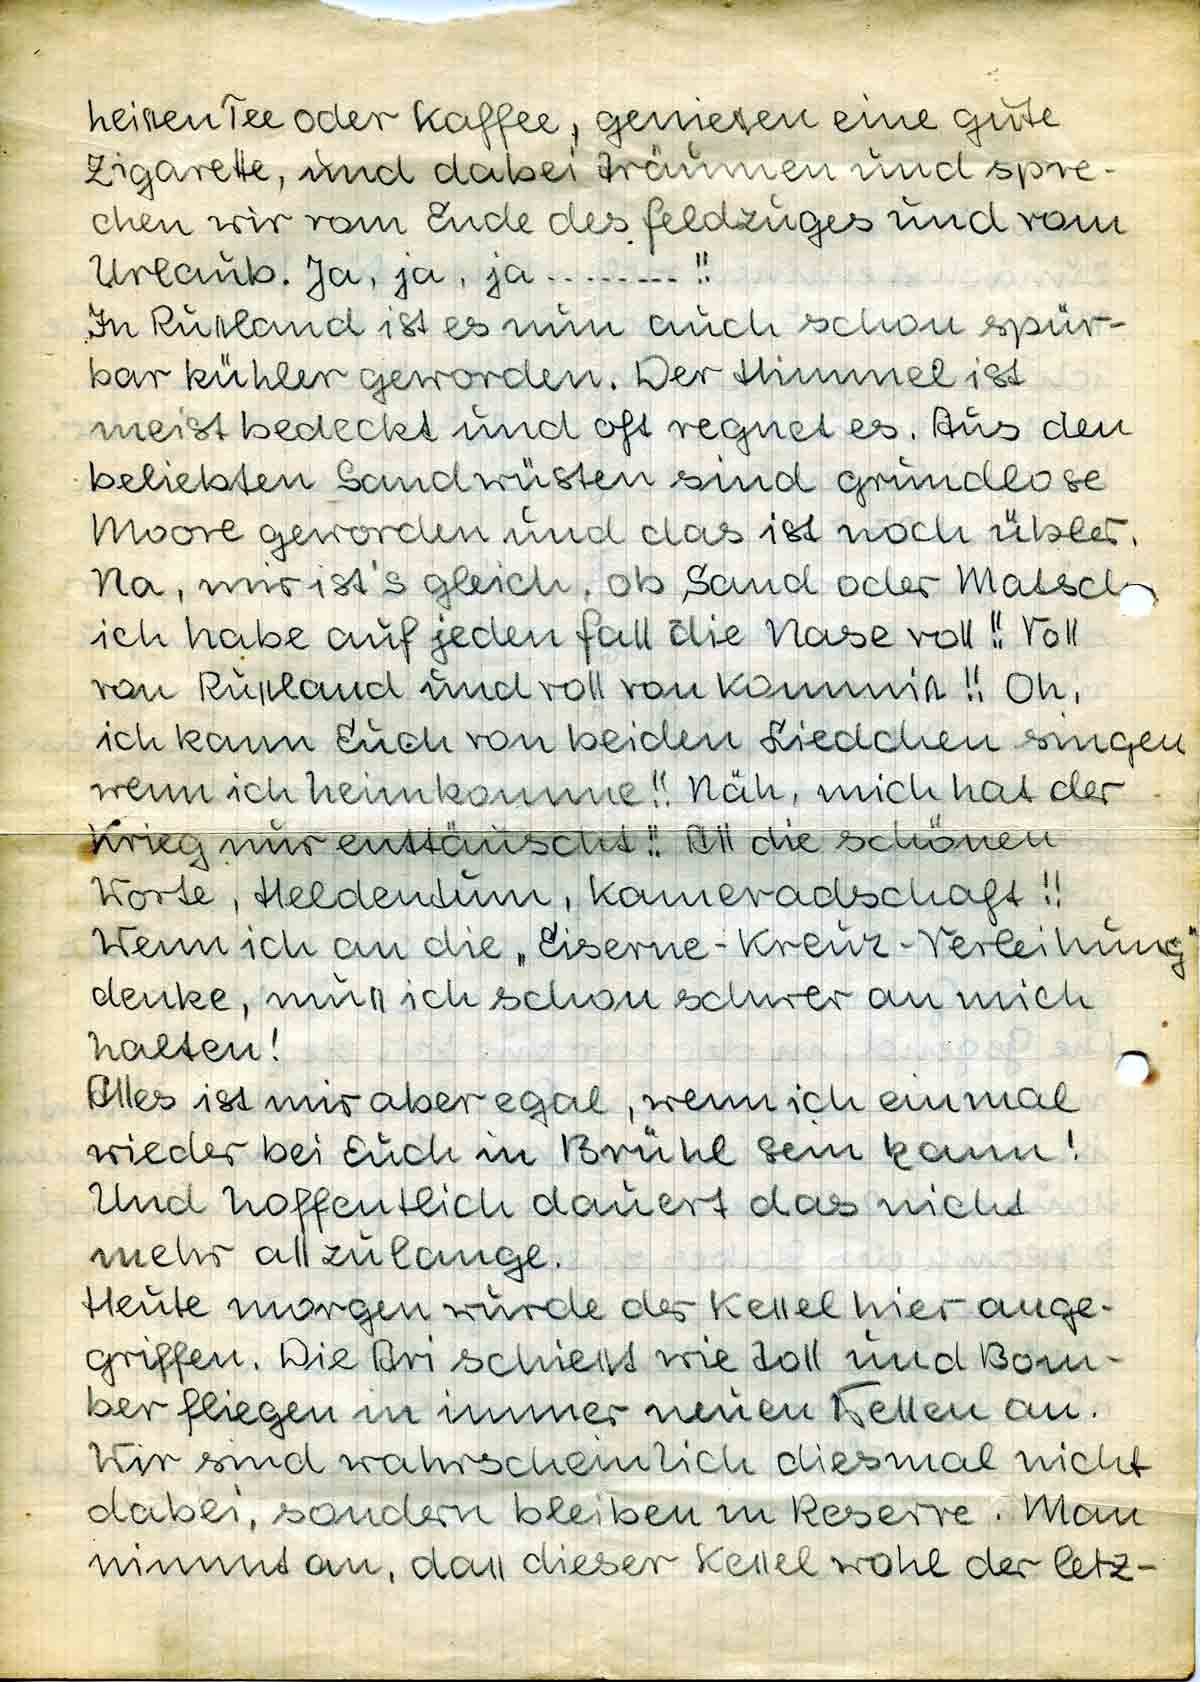 heißen Tee oder Kaffee, genießen eine gute
Zigarette, und dabei träumen und spre-
chen wir vom Ende des Feldzuges und vom
Urlaub. Ja, ja, ja ......... !!
In Rußland ist es nun auch schon spür-
bar kühler geworden. Der Himmel ist
meist bedeckt und oft regnet es. Aus den
beliebten Sandwüsten sind grundlose
Moore geworden und das ist noch übler.
Na, mir ist's gleich, ob Sand oder Matsch
ich habe auf jeden Fall die Nase voll!! Voll
von Rußland und voll von Kommiß!! Oh,
ich kann Euch von beiden Liedchen singen
wenn ich heimkomme!! Näh, mich hat der
Krieg nur enttäuscht!! All die schönen
Worte, Heldentum, Kameradschaft!!
Wenn ich an die „Eiserne-Kreuz-Verleihung"
denke, muß ich schon schwer an mich
halten!
Alles ist mir aber egal, wenn ich einmal
wieder bei Euch in Brühl sein kann!
Und hoffentlich dauert das nicht
mehr allzulange.
Heute morgen wurde der Kessel hier ange-
griffen. Die Ari schießt wie toll und Bom-
ber fliegen in immer neuen Wellen an.
Wir sind wahrscheinlich diesmal nicht
dabei, sondern bleiben in Reserve. Man
nimmt an, daß dieser Kessel wohl der letz-